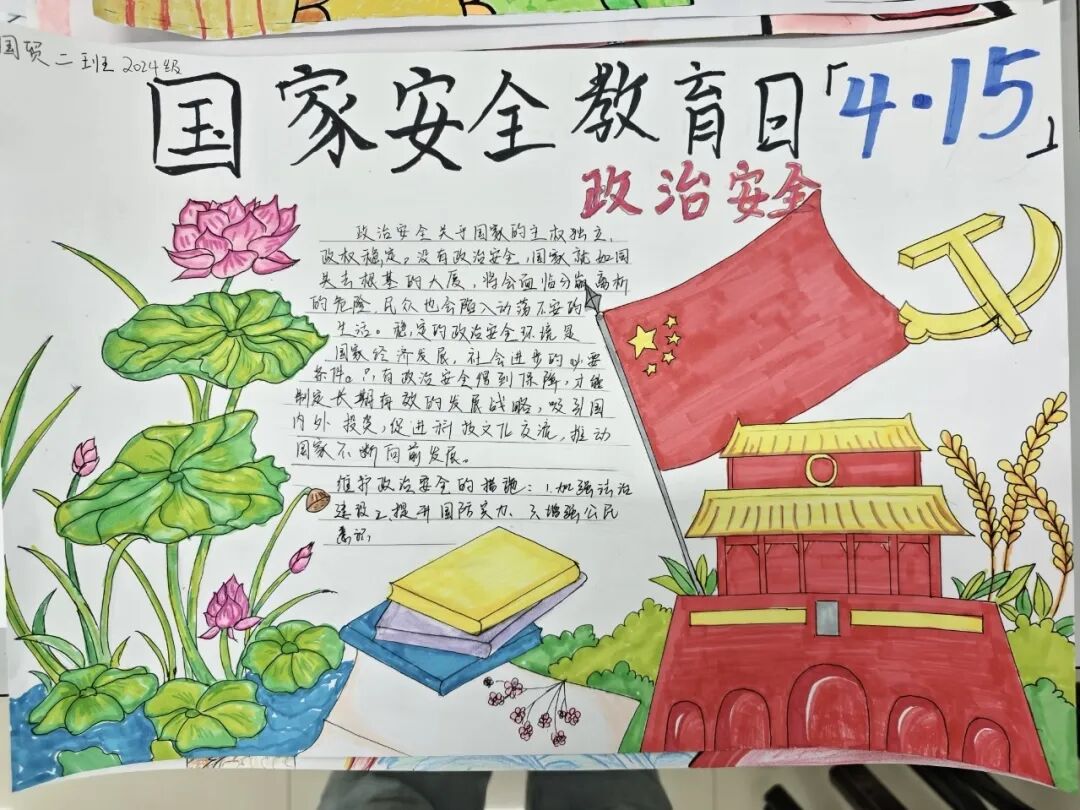 国贸二班 2024级
国家安全教育日「4·15」
政治安全
政治安全关乎国家的主权独立、
政权稳定。没有政治安全,国家就如同
失去根基的大厦,将会面临分崩离析
的危险,民众也会陷入动荡不安的
生活。稳定的政治安全环境是
国家经济发展,社会进步的必要
条件。只有政治安全得到保障,才能
制定长期有效的发展战略,吸引国
内外投资,促进科技文化交流,推动
国家不断向前发展。
维护政治安全的措施:1.加强法治
建设2.提升国防实力、3.增强公民
意识,